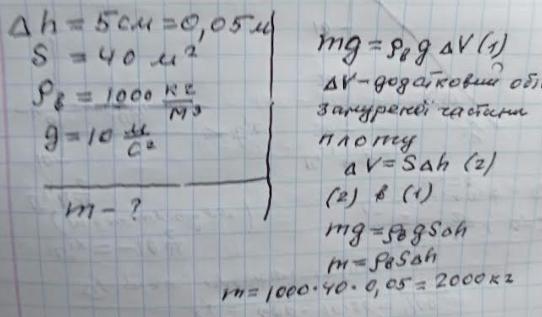 Δh = 5см = 0,05м
S = 40 м²
ρв = 1000 кг/м³
g = 10 м/с²
m - ?
mg = ρв g ΔV (1)
ΔV - додатковий об
зануреної частини
плоту
ΔV = SΔh (2)
(2) в (1)
mg = ρв g SΔh
m = ρв SΔh
m = 1000 · 40 · 0,05 = 2000 кг